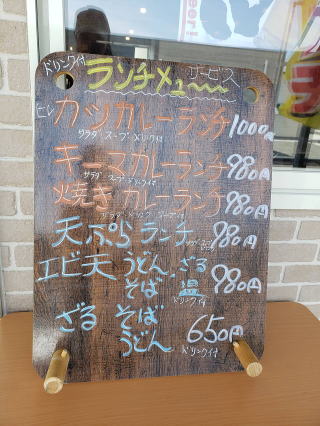 ドリンク付 ランチメニュー サービス
ヒレ カツカレーランチ 1000円
サラダ・スープ・ドリンク付
キーマカレーランチ 980円
サラダ・スープ・ドリンク付
焼きカレーランチ 980円
サラダ・ドリンク・スープ付
天ぷらランチ 980円
エビ天 うどん、ざる
そば 温 980円
ドリンク付
ざる そば
うどん 650円
ドリンク付